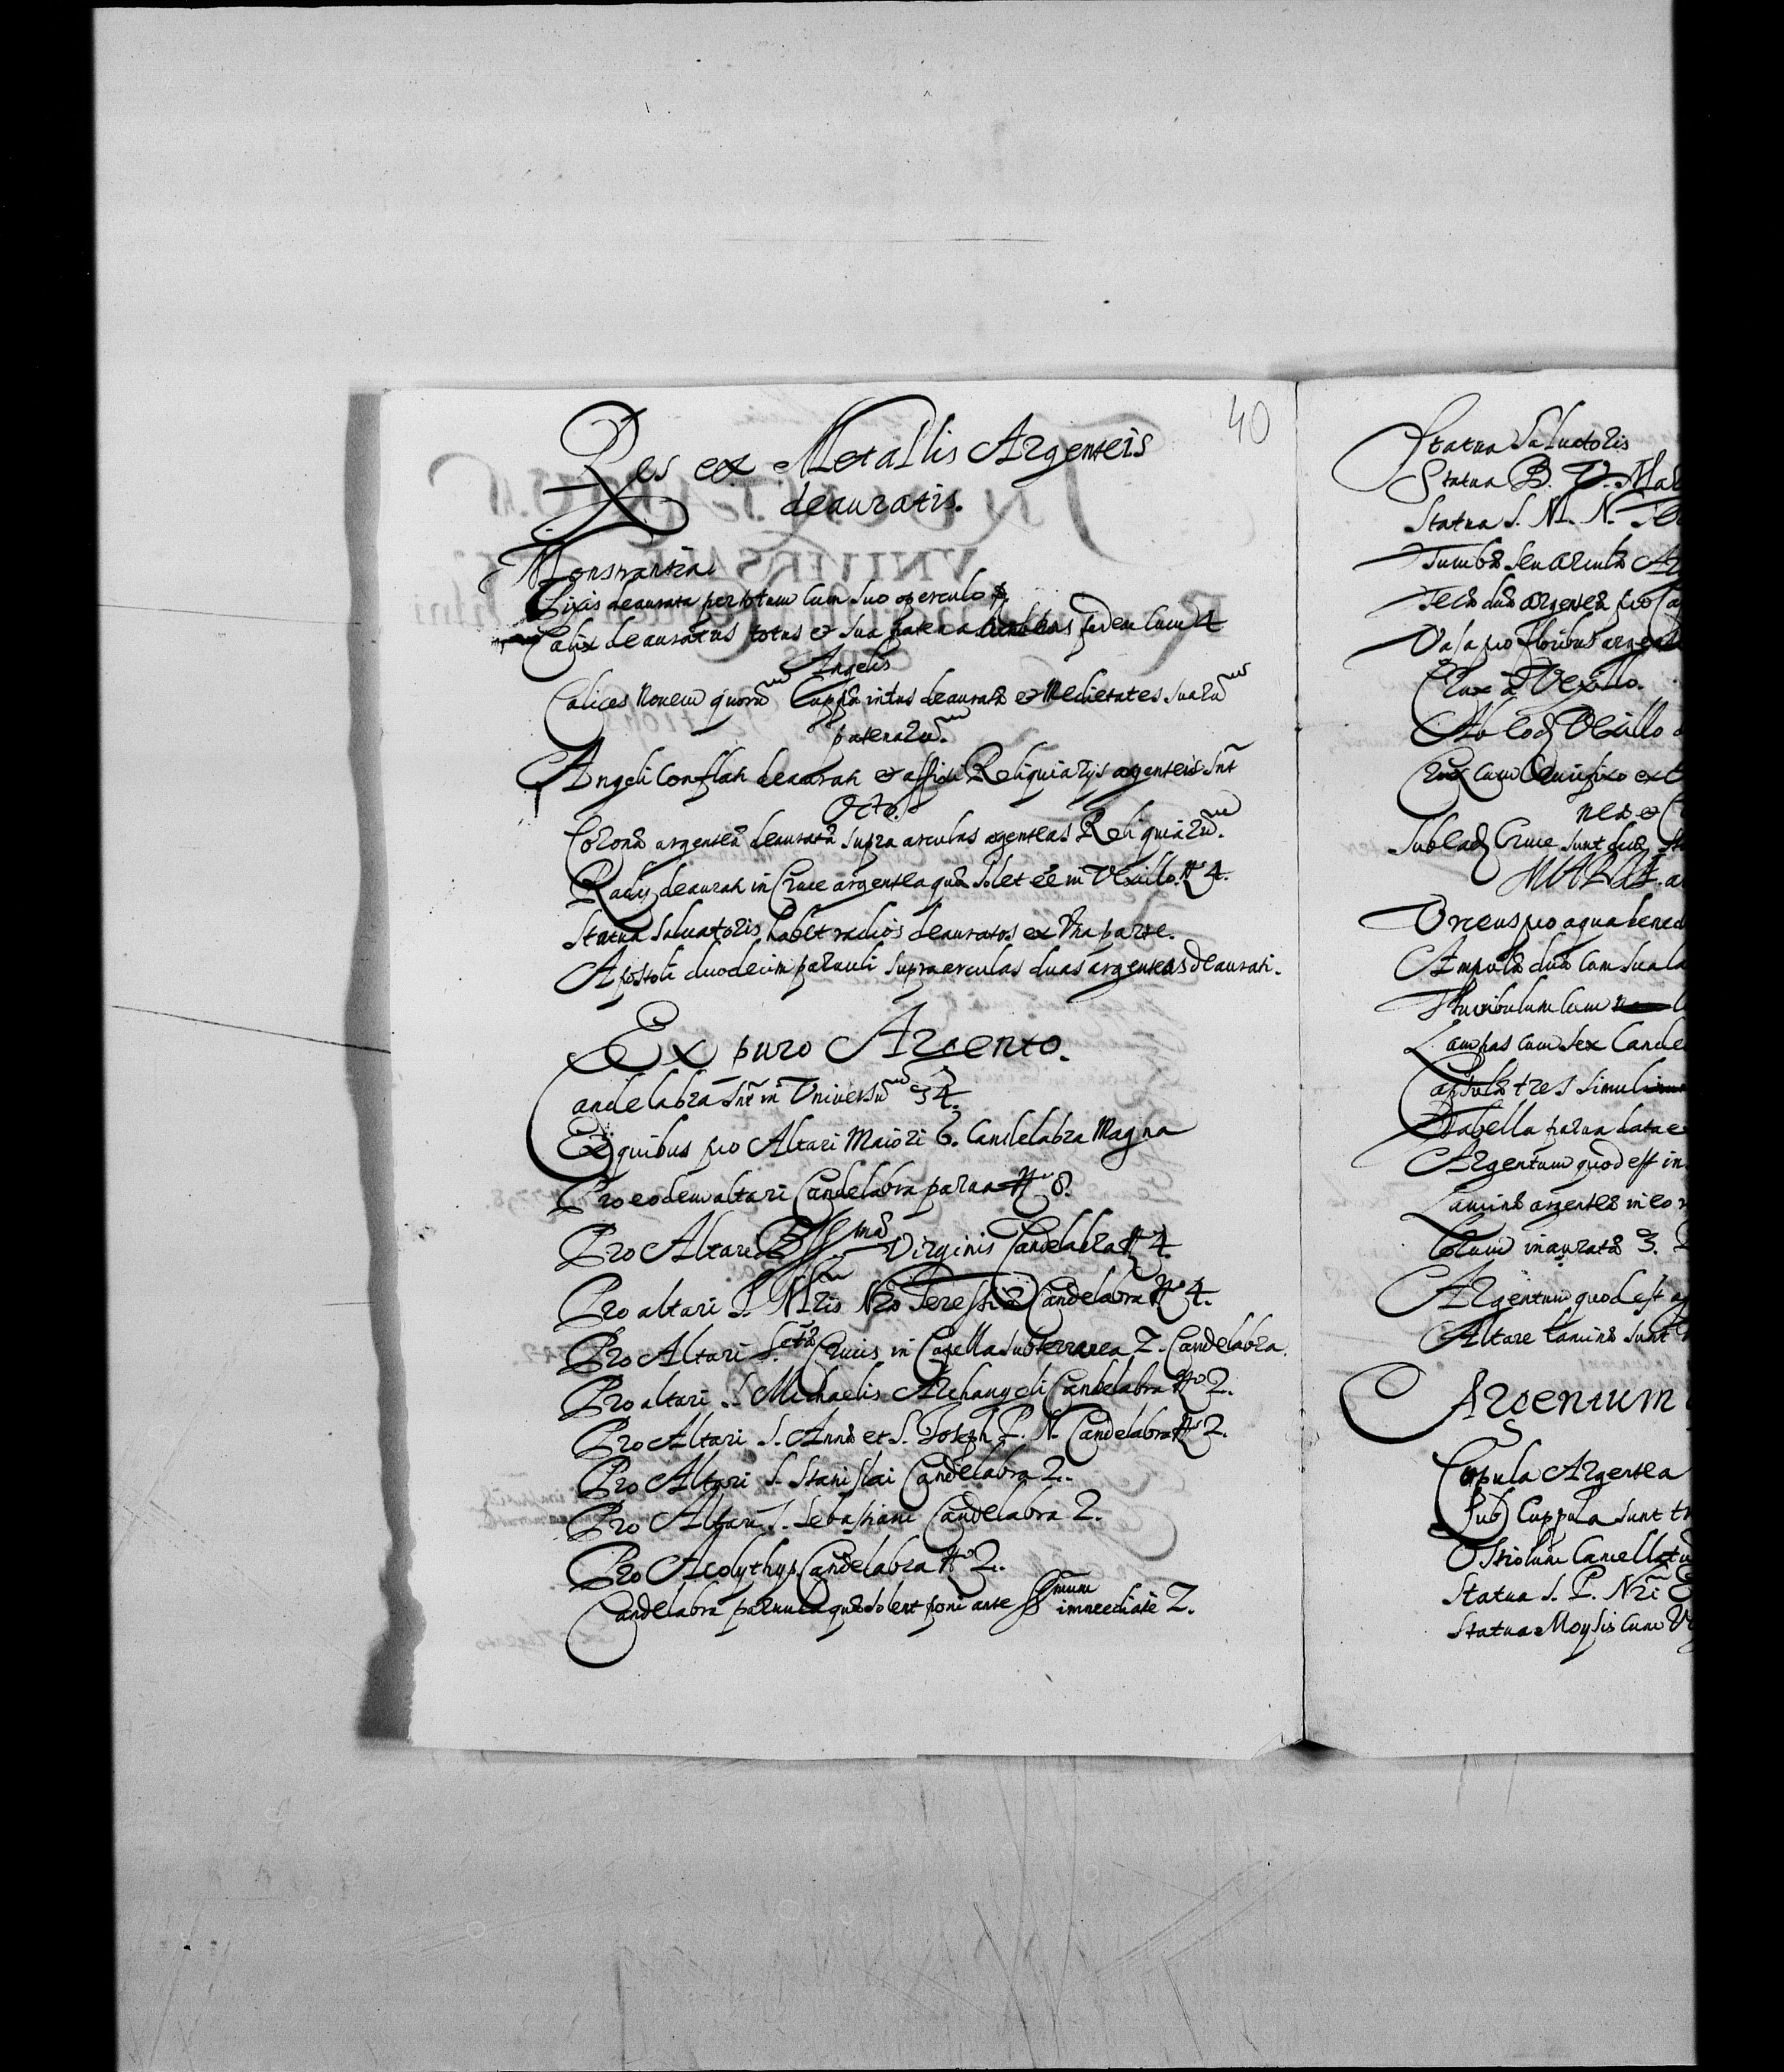 40
Res ex Metallis Argenteis
deauratis.
Monstrantia
Pixis deaurata per totum cum suo operculo
Calix deauratus totus et sua patena pedem cum 4
Angelis
Calices Novem quorũ Cuppæ intus deauratæ et Medietates suarũ
patenarũ.
Angeli conflati deaurati et affixi Reliquiarijs argenteis snt̃
Octo.
Coronæ argenteæ deauratæ supra arculas argenteas Reliquiarũ.
Radij deaurati in Cruce argentea quæ solet eẽ in Vexillo. No 4.
Statua Saluatoris habet radios deauratos ex Vna parte.
Apostoli duodecim paruuli supra arculas duas argenteas deaurati.
Ex puro Argento.
Candelabra snt̃ in Vniversũ 34.
Ex quibus pro Altari Maiori 6. Candelabra Magna
Pro eodem altari Candelabra parua No 8.
Pro Altare BSSmæ Virginis Candelabra No 4.
Pro altari S. Mr̃is Nr̃o Teressiæ Candelabra No 4.
Pro Altari S.ctæ Crucis in Capella subterranea 2. Candelabra.
Pro altari S. Michaelis Archangeli Candelabra No 2.
Pro Altari S. Annæ et S. Joseph P. N. Candelabra No 2.
Pro Altari S. Stanislai Candelabra 2.
Pro Altari S. Sebastiani Candelabra 2.
Pro Acolythys Candelabra No 2.
Candelabra paruula quæ solent poni ante SSmum immediate 2.
Statua Saluatoris
Statua B. V. Mar
Statua S. M. N. Te
Tumbæ seu arculæ Ar
Tecæ duæ argenteæ pro Ca
Vasa pro floribus argent
Crux à Vexillo.
Ab eodẽ Vexillo
Crux cum Crucifixo ex
neæ et C
Sub eadẽ Cruce sunt duæ Sta
MARIÆ. a
Vrceus pro aqua bened
Ampullæ duæ cum sua la
Thuribulum cum
Lampas cum sex Cande
Capsulæ tres simul
Tabella parua data e
Argentum quod est in
Laminæ argenteæ in eo
Corum inauratæ 3.
Argentum quod est a
Altare laminæ sunt
Argentum
Cupula Argentea
Sub Cuppula sunt tr
Ostiolum Cancellatu
Statua S. P. Nr̃i E
Statua Moysis cum V